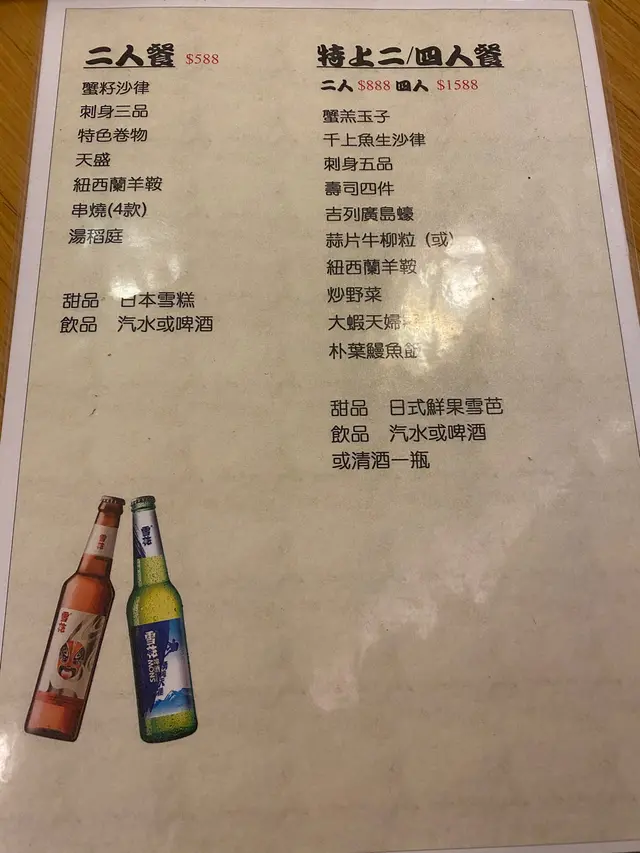 二人餐 $588
蟹籽沙律
刺身三品
特色卷物
天盛
紐西蘭羊鞍
串燒(4款)
湯稻庭
甜品 日本雪糕
飲品 汽水或啤酒
特上二/四人餐
二人 $888 四人 $1588
蟹羔玉子
千上魚生沙律
刺身五品
壽司四件
吉列廣島蠔
蒜片牛柳粒 (或)
紐西蘭羊鞍
炒野菜
大蝦天婦
朴葉鰻魚飯
甜品 日式鮮果雪芭
飲品 汽水或啤酒
或清酒一瓶
雪花
雪花
雪花
雪花
啤酒
SNOW